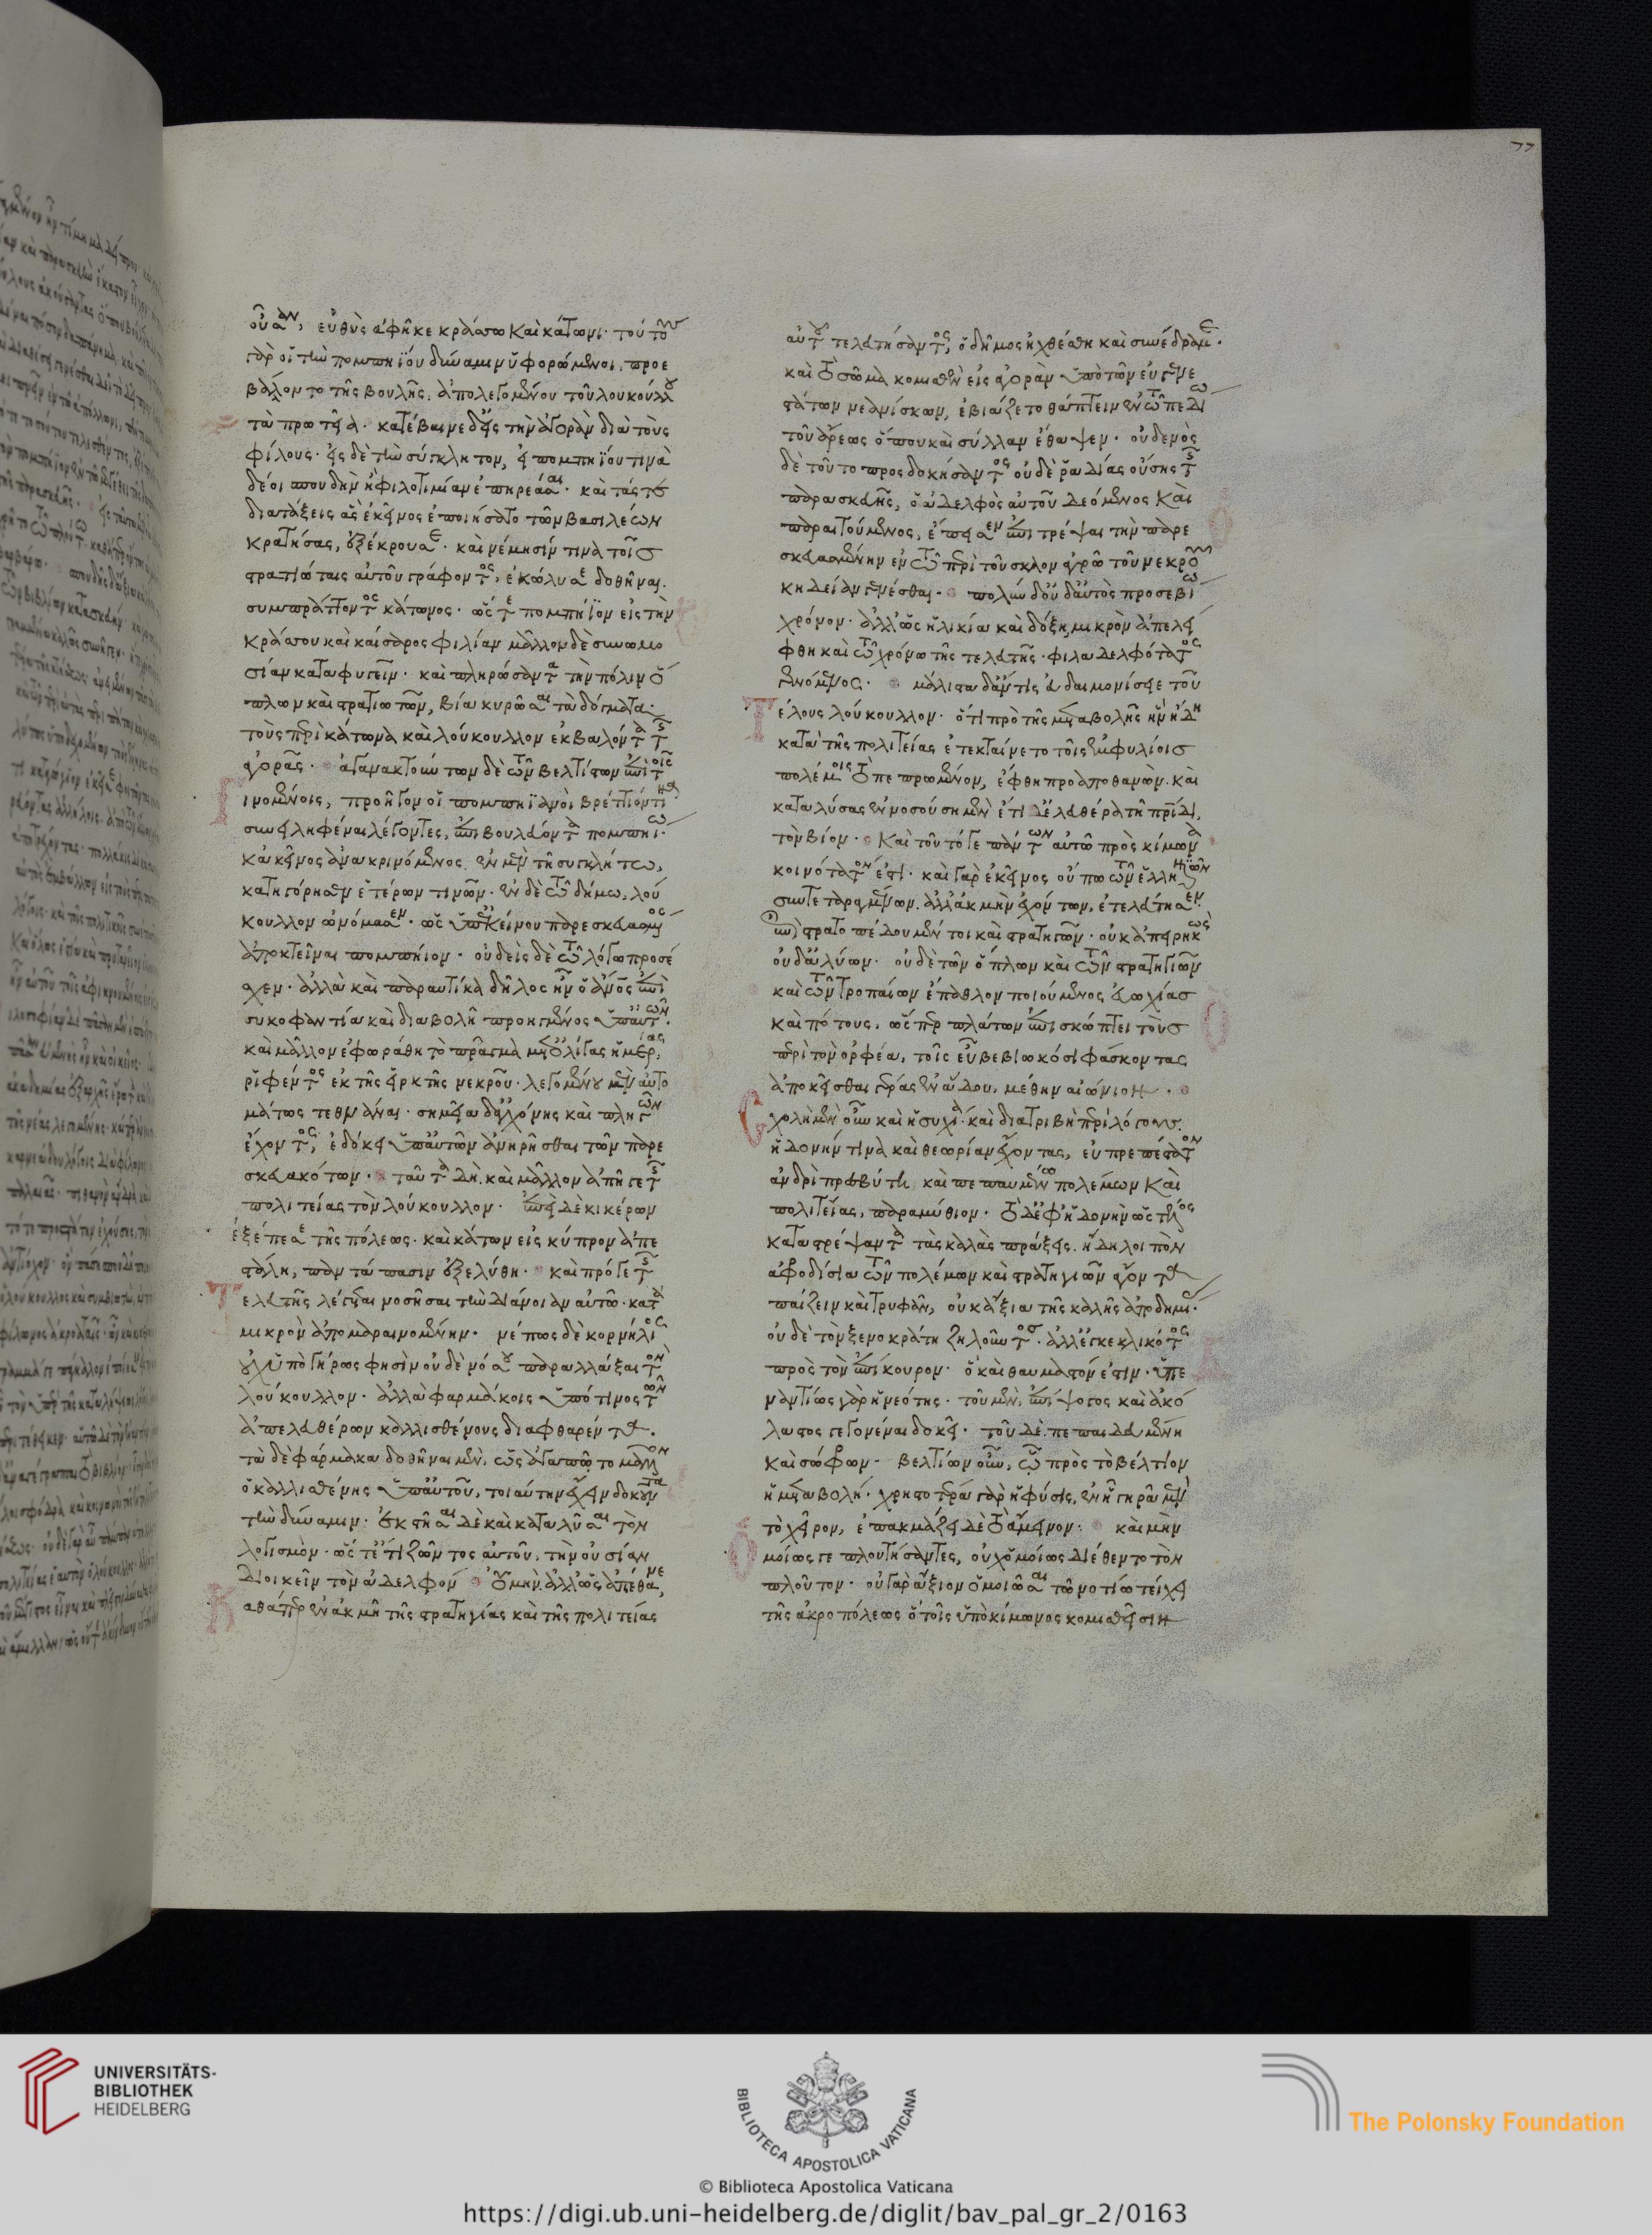 οὖσαν, εὐθὺς ἀφῆκε κράσσω καὶ κάτωνι· τοῦτον
γὰρ οἱ τὴν πομπηΐου δύναμιν ὑφορώμενοι, προε
βάλοντο τῆς βουλῆς, ἀπολεγομένου τοῦ λουκούλλου
τὰ πρωτεῖα. κατέβαινε δ' εἰς τὴν ἀγορὰν διὰ τοὺς
φίλους· εἰς δὲ τὴν σύγκλητον, εἰ πομπηΐου τινὰ
δέοι σπουδὴν ἢ φιλοτιμίαν ἐπηρεάσαι· καὶ τάς τε
διατάξεις ἃς ἐκεῖνος ἐποιήσατο τῶν βασιλέων
κρατήσας, ἐξέκρουσε· καὶ νέμησίν τινα τοῖς
στρατιώταις αὐτοῦ γράφοντος, ἐκώλυσε δοθῆναι.
συμπράττοντος κάτωνος· ὥστε πομπήϊον εἰς τὴν
κράσσου καὶ καίσαρος φιλίαν μᾶλλον δὲ συνωμο
σίαν καταφυγεῖν· καὶ πληρώσαντα τὴν πόλιν ὅ
πλων καὶ στρατιωτῶν, βία κυρῶσαι τὰ δόγματα·
τοὺς περὶ κάτωνα καὶ λούκουλλον ἐκβαλόντα τῆς
ἀγορᾶς· ἀγανακτούντων δὲ τῶν βελτίστων ἐπὶ τοῖς
γινομένοις, προῆγον οἱ πομπηϊανοὶ βρέττιόν τινα
συνειληφέναι λέγοντες, ἐπιβουλεύοντα πομπηίω·
κἀκεῖνος ἀνακρινόμενος ἐν μὲν τῆ συγκλήτω,
κατηγόρησεν ἑτέρων τινῶν· ἐν δὲ τῶ δήμω, λού
κουλλον ὠνόμασεν· ὡς ὑπ' ἐκείνου παρεσκευασμένος
ἀποκτεῖναι πομπήιον· οὐδεὶς δὲ τῶ λόγω προσέ
χεν· ἀλλὰ καὶ παραυτίκα δῆλος ἦν ὁ ἄνθρωπος ἐπὶ
συκοφαντία καὶ διαβολῆ προηγμένος ὑπ' αὐτῶν·
καὶ μᾶλλον ἐφωράθη τὸ πρᾶγμα μετ' ὀλίγας ἡμέρας,
ῥιφέντος ἐκ τῆς εἱρκτῆς νεκροῦ· λεγομένου μὲν αὐτο
μάτως τεθνάναι· σημεῖα δ' ἀγχόνης καὶ πληγῶν
ἔχοντος, ἐδόκει ὑπ' αὐτῶν ἀνηρῆσθαι τῶν παρε
σκευακότων· ταῦτα δὴ καὶ μᾶλλον ἀπῆγε τῆς
πολιτείας τὸν λούκουλλον· ἐπεὶ δὲ κικέρων
ἐξέπεσε τῆς πόλεως· καὶ κάτων εἰς κύπρον ἀπε
στάλη, παντάπασιν ἐξελύθη· καὶ πρό γε τῆς
τελευτῆς λέγεται νοσῆσαι τὴν διάνοιαν αὐτῶ κατὰ
μικρὸν ἀπομαραινομένην· νέπως δὲ κορνήλιος
οὐχ ὑπὸ γήρως φησὶν οὐδὲ νόσου παραλλάξαι τὸν
λούκουλλον· ἀλλὰ φαρμάκοις ὑπό τινος τῶν
ἀπελευθέρων καλλισθένους διαφθαρέντα.
τὰ δὲ φάρμακα δοθῆναι μὲν, ὡς ἀγαπῶτο μᾶλλον
ὁ καλλισθένης ὑπ' αὐτοῦ, τοιαύτην ἔχειν δοκοῦντα
τὴν δύναμιν· ἐκστῆσαι δὲ καὶ κατακλῦσαι τὸν
λογισμὸν· ὥστ' ἔτι ζῶντος αὐτοῦ, τὴν οὐσίαν
διοικεῖν τὸν ἀδελφόν οὐ μὴν ἀλλ' ὡς ἀπέθανε,
καθάπερ ἐν ἀκμῆ τῆς στρατηγίας καὶ τῆς πολιτείας
αὐτοῦ τελευτήσαντος, ὁ δῆμος ἠχθέσθη καὶ συνέδραμε·
καὶ τὸ σῶμα κομισθὲν εἰς ἀγορὰν ὑπὸ τῶν εὐγενε
στάτων νεανίσκων, ἐβιάζετο θάπτειν ἐν τῶ πεδίω
τοῦ ἄρεως ὅπου καὶ σύλλαν ἔθαψεν· οὐδενὸς
δὲ τοῦτο προσδοκήσαντος οὐδὲ ῥαδίας οὔσης τῆς
παρασκευῆς, ὁ ἀδελφὸς αὐτοῦ δεόμενος καὶ
παραιτούμενος, ἔπεισεν ἐπιτρέψαι τὴν παρε
σκευασμένην ἐν τῶ περὶ τοῦσκλον ἀγρῶ τοῦ νεκροῦ
κηδείαν γενέσθαι· πολὺν δ' οὐδ' αὐτὸς προσεβίω
χρόνον· ἀλλ' ὡς ἡλικία καὶ δόξη μικρὸν ἀπελεί
φθη καὶ τῶ χρόνω τῆς τελευτῆς· φιλαδελφότατος
γενόμενος· μάλιστα δ' ἄν τις εὐδαιμονίσειε τοῦ
τέλους λούκουλλον· ὅτι πρὸ τῆς μεταβολῆς ἣν ἤδη
κατὰ τῆς πολιτείας ἐτεκταίνετο τοῖς ἐμφυλίοις
πολέμοις τὸ πεπρωμένον, ἔφθη προαποθανὼν καὶ
καταλύσας ἐν νοσούση μὲν ἔτι δ' ἐλευθέρα τῆ πατρίδι,
τὸν βίον· καὶ τοῦτό γε πάντων αὐτῶ πρὸς κίμωνα
κοινότατόν ἐστι· καὶ γὰρ ἐκεῖνος οὔπω τῶν ἑλληνικῶν
συντεταραγμένων ἀλλ' ἀκμὴν ἐχόντων, ἐτελεύτησεν
ἐπὶ στρατοπέδου μέν τοι καὶ στρατηγῶν· οὐκ ἀπειρηκὼς
οὐδ' ἀλύων· οὐδὲ τῶν ὅπλων καὶ τῶν στρατηγιῶν
καὶ τῶν τροπαίων ἔπαθλον ποιούμενος εὐωχίας
καὶ πότους, ὥσπερ πλάτων ἐπισκώπτει τοὺς
περὶ τὸν ὀρφέα, τοῖς εὖ βεβιωκόσι φάσκοντας
ἀποκεῖσθαι γέρας ἐν ἅδου, μέθην αἰώνιον.
σχολὴ μὲν οὖν καὶ ἡσυχία καὶ διατριβὴ περὶ λόγους
ἡδονήν τινα καὶ θεωρίαν ἔχοντας, εὐπρεπέστατον
ἀνδρὶ πρεσβύτη καὶ πεπαυμένω πολέμων καὶ
πολιτείας, παραμύθιον· τὸ δ' ἐφ' ἡδονὴν ὡς τέλος
καταστρέψαντα τὰς καλὰς πράξεις ἤδη λοιπὸν
ἀφροδίσια τῶν πολέμων καὶ στρατηγιῶν ἄγοντα
παίζειν καὶ τρυφᾶν, οὐκ ἄξια τῆς καλῆς ἀκαδημίας·
οὐδὲ τὸν ξενοκράτη ζηλοῦντος· ἀλλ' ἐγκεκλικότος
πρὸς τὸν ἐπίκουρον· ὃ καὶ θαυμαστόν ἐστιν· ὑπε
ναντίως γὰρ ἡ νεότης· τοῦ μὲν, ἐπίψογος καὶ ἀκό
λαστος γεγονέναι δοκεῖ· τοῦ δὲ, πεπαιδευμένη
καὶ σώφρων· βελτίων οὖν, ὧ πρὸς τὸ βέλτιον
ἡ μεταβολή· χρηστοτέρα γὰρ ἡ φύσις, ἐν ἧ γηρᾶ μὲν
τὸ χεῖρον, ἐπακμάζει δὲ τὸ ἄμεινον· καὶ μὴν
ὁμοίως γε πλουτήσαντες, οὐχ ὁμοίως διέθεντο τὸν
πλοῦτον· οὐ γὰρ ἄξιον ὁμοιῶσαι τῶ νοτίω τείχει
τῆς ἀκροπόλεως ὃ τοῖς ὑπὸ κίμωνος κομισθεῖσιν
77
UNIVERSITÄTS-
BIBLIOTHEK
HEIDELBERG
BIBLIOTECA APOSTOLICA VATICANA
The Polonsky Foundation
© Biblioteca Apostolica Vaticana
https://digi.ub.uni-heidelberg.de/diglit/bav_pal_gr_2/0163